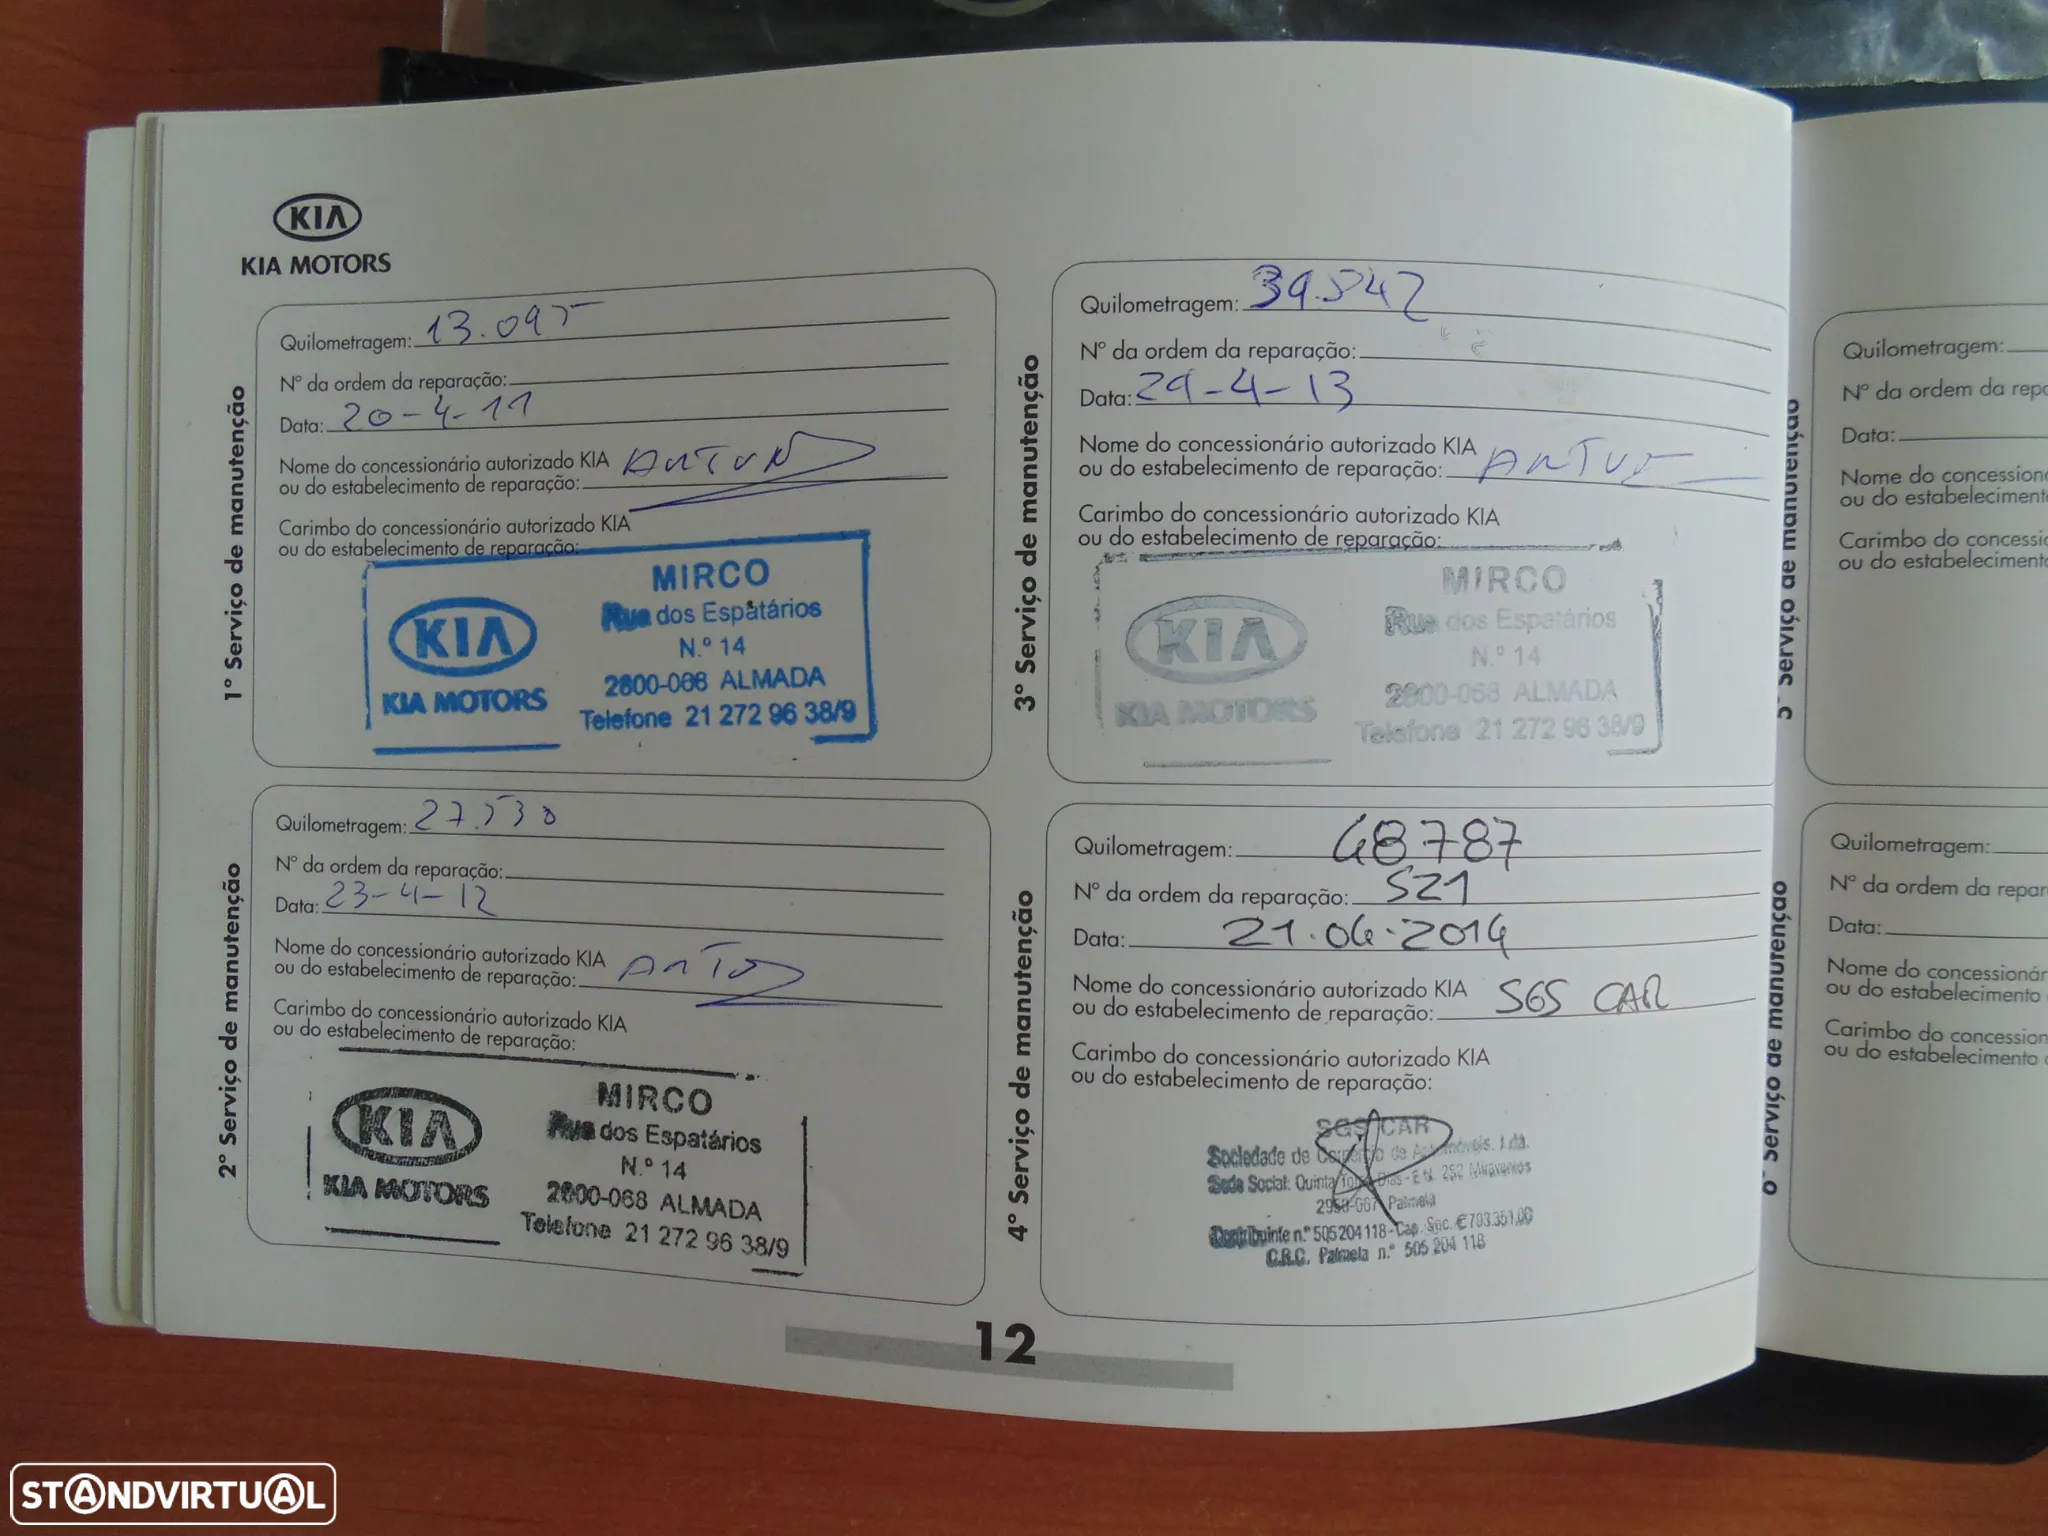 KIA
KIA MOTORS
1º Serviço de manutenção
Quilometragem: 13.095
Nº da ordem da reparação:
Data: 20-4-11
Nome do concessionário autorizado KIA
ou do estabelecimento de reparação:
Carimbo do concessionário autorizado KIA
ou do estabelecimento de reparação:
KIA
KIA MOTORS
MIRCO
Rua dos Espatários
N.º 14
2800-068 ALMADA
Telefone 21 272 96 38/9
2º Serviço de manutenção
Quilometragem: 27.530
Nº da ordem da reparação:
Data: 23-4-12
Nome do concessionário autorizado KIA
ou do estabelecimento de reparação:
Carimbo do concessionário autorizado KIA
ou do estabelecimento de reparação:
KIA
KIA MOTORS
MIRCO
Rua dos Espatários
N.º 14
2800-068 ALMADA
Telefone 21 272 96 38/9
3º Serviço de manutenção
Quilometragem: 39.542
Nº da ordem da reparação:
Data: 29-4-13
Nome do concessionário autorizado KIA
ou do estabelecimento de reparação:
Carimbo do concessionário autorizado KIA
ou do estabelecimento de reparação:
KIA
KIA MOTORS
MIRCO
Rua dos Espatários
N.º 14
2800-068 ALMADA
Telefone 21 272 96 38/9
4º Serviço de manutenção
Quilometragem: 48787
Nº da ordem da reparação: 521
Data: 21.04.2014
Nome do concessionário autorizado KIA
ou do estabelecimento de reparação: SGS CAR
Carimbo do concessionário autorizado KIA
ou do estabelecimento de reparação:
SGS CAR
Sociedade de Comércio de Automóveis, Lda.
Sede Social: Quinta Torre Dias - E.N. 252 Miraventos
2950-667 Palmela
Contribuinte n.º 505 204 118 - Cap. Soc. € 793.351,00
C.R.C. Palmela n.º 505 204 118
12
5º Serviço de manutenção
Quilometragem:
Nº da ordem da repa
Data:
Nome do concession
ou do estabelecimento
Carimbo do concessi
ou do estabelecimento
6º Serviço de manutenção
Quilometragem:
Nº da ordem da repar
Data:
Nome do concessionár
ou do estabelecimento
Carimbo do concession
ou do estabelecimento
STANDVIRTUAL